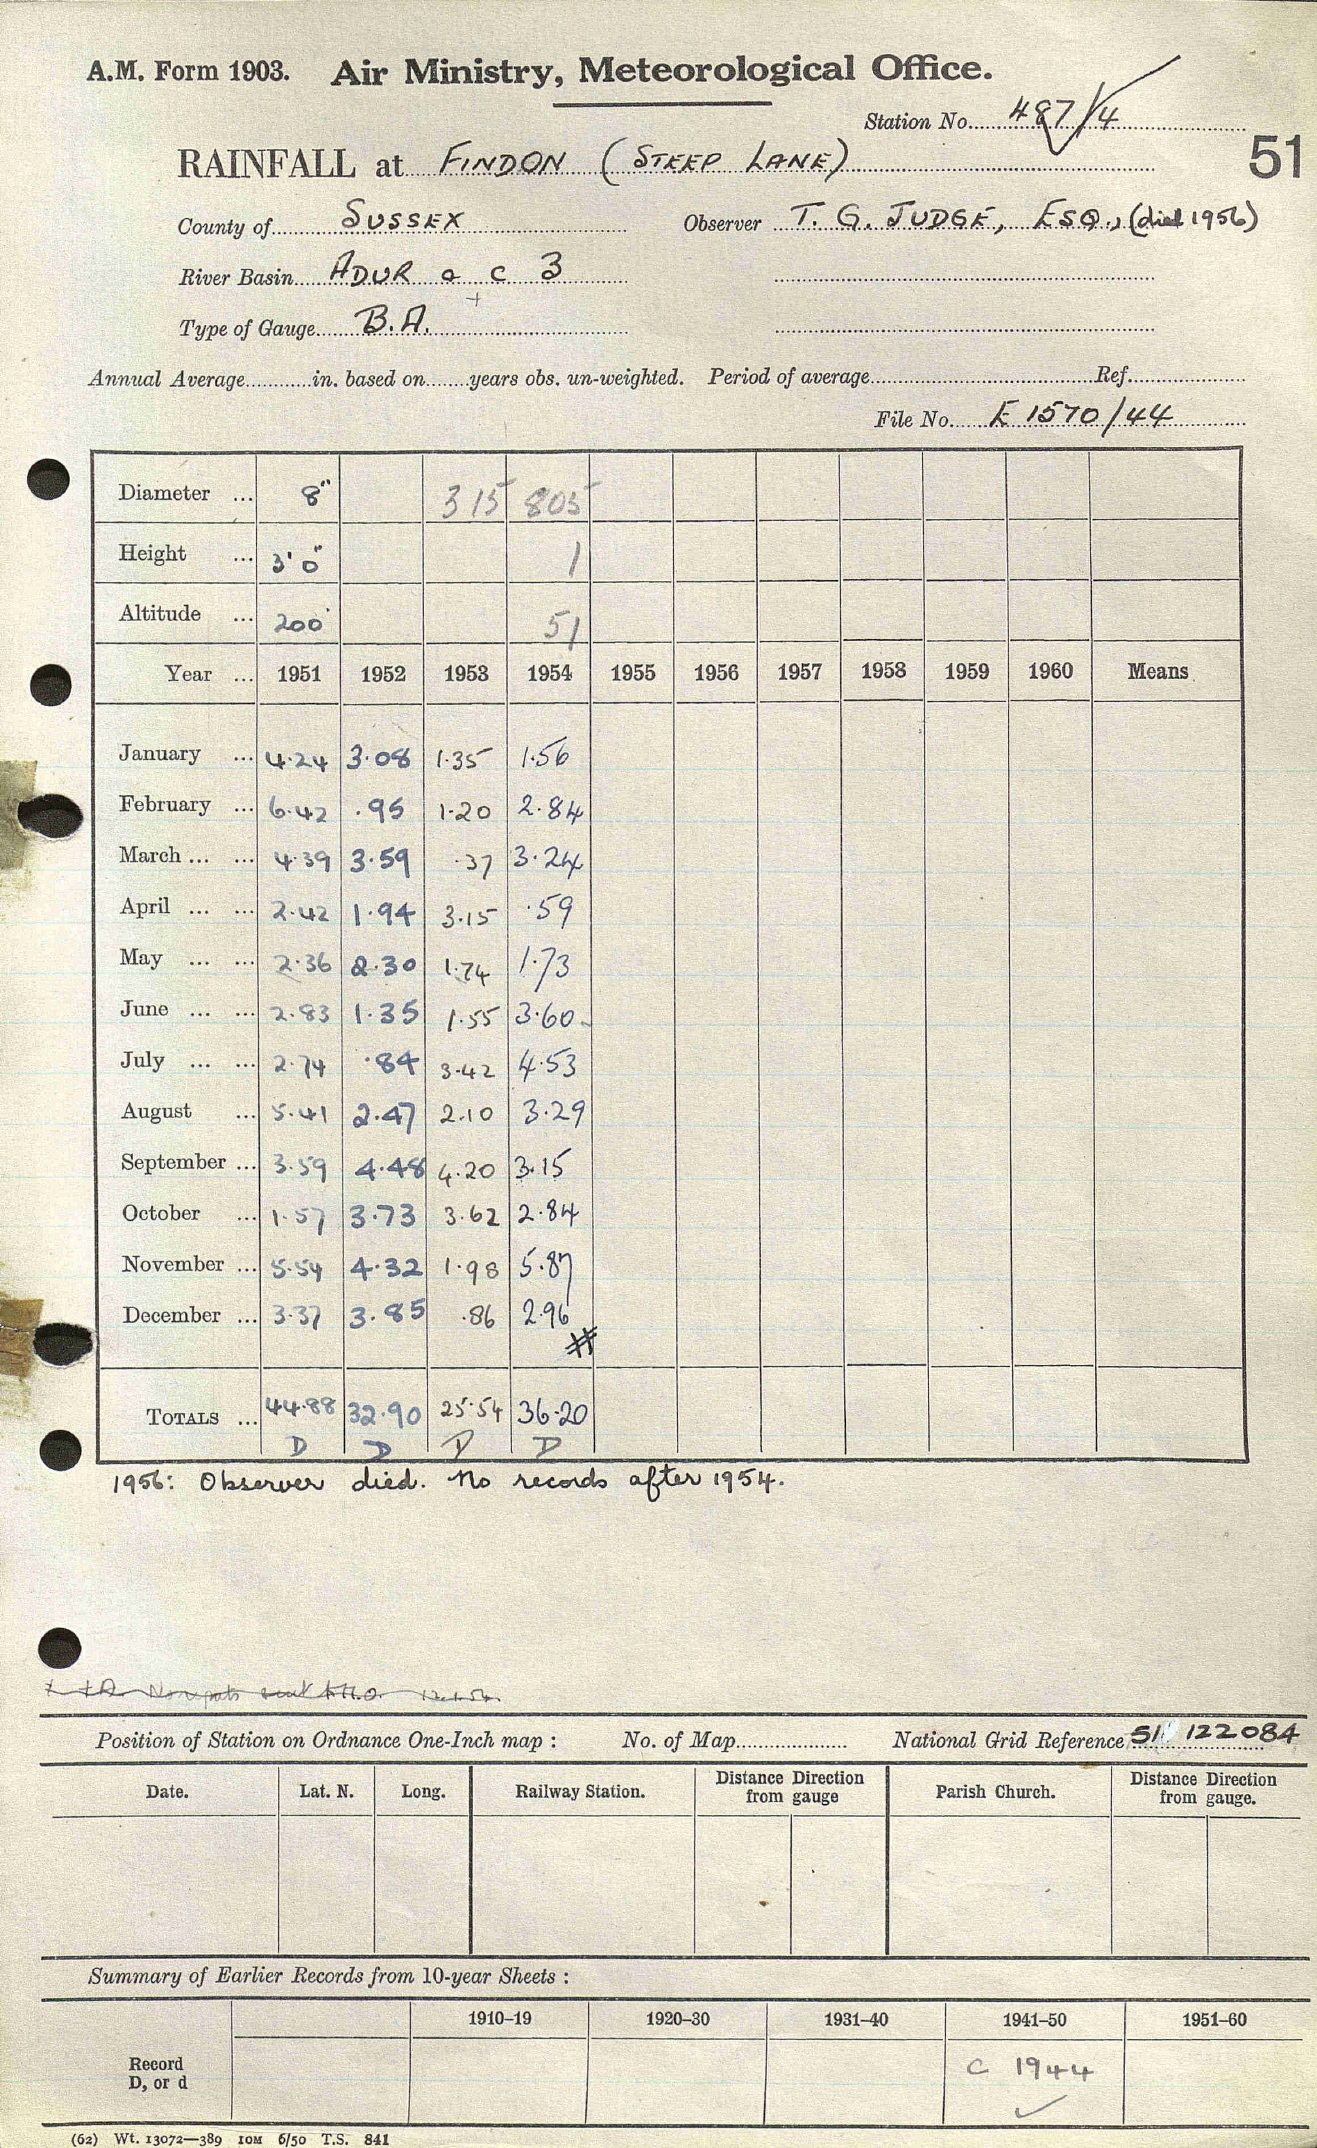 A.M. Form 1903. Air Ministry, Meteorological Office.
Station No. 487/4
51
RAINFALL at FINDON (STEEP LANE)
County of SUSSEX Observer T. G. JUDGE, ESQ., (died 1956)
River Basin ADUR a c 3
Type of Gauge B.A.
Annual Average in. based on years obs. un-weighted. Period of average Ref.
File No. E 1570/44
Diameter ... 8" 315 805
Height ... 3' 0" 1
Altitude ... 200' 51
Year ... 1951 1952 1953 1954 1955 1956 1957 1958 1959 1960 Means
January ... 4.24 3.08 1.35 1.56
February ... 6.42 .95 1.20 2.84
March ... ... 4.39 3.59 .37 3.24
April ... ... 2.42 1.94 3.15 .59
May ... ... 2.36 2.30 1.74 1.73
June ... ... 2.83 1.35 1.55 3.60
July ... ... 2.74 .84 3.42 4.53
August ... 5.41 2.47 2.10 3.29
September ... 3.59 4.48 4.20 3.15
October ... 1.57 3.73 3.62 2.84
November ... 5.54 4.32 1.98 5.87
December ... 3.37 3.85 .86 2.96
#
TOTALS ... 44.88 32.90 25.54 36.20
D D D D
1956: Observer died. No records after 1954.
Position of Station on Ordnance One-Inch map : No. of Map National Grid Reference 51 122084
Date. Lat. N. Long. Railway Station. Distance Direction from gauge Parish Church. Distance Direction from gauge.
Summary of Earlier Records from 10-year Sheets :
1910–19 1920–30 1931–40 1941–50 1951–60
Record
D, or d
C 1944
(62) Wt. 13072—389 10M 6/50 T.S. 841